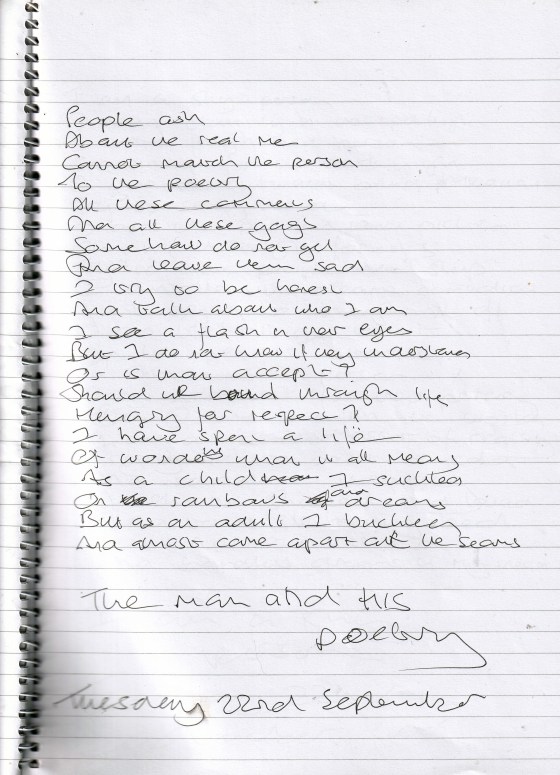 People ask
About the real me
Cannot match the person
To the poetry
All these comments
And all these gags
Somehow do not gel
And leave them sad
I try to be honest
And talk about who I am
I see a flash in their eyes
But I do not know if they understand
Or is that accept?
Should we bound through life
Hungry for respect?
I have spent a life
Of wonders what it all means
As a child I suckled
On rainbows and dreams
But as an adult I buckled
And almost came apart at the seams
The man and his
poetry
Tuesday 22nd September